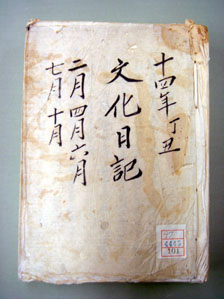 十四年丁丑
文化日記
二月 四月 六月
七月 十月
101